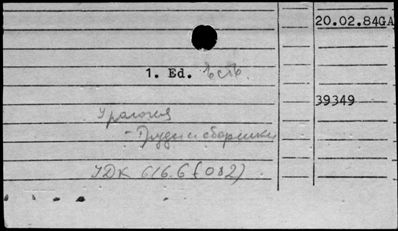 20.02.84GA
1. Ed. ЪСТЬ
39349
Урология
- Труды и сборники
УДК 616.6 (082)